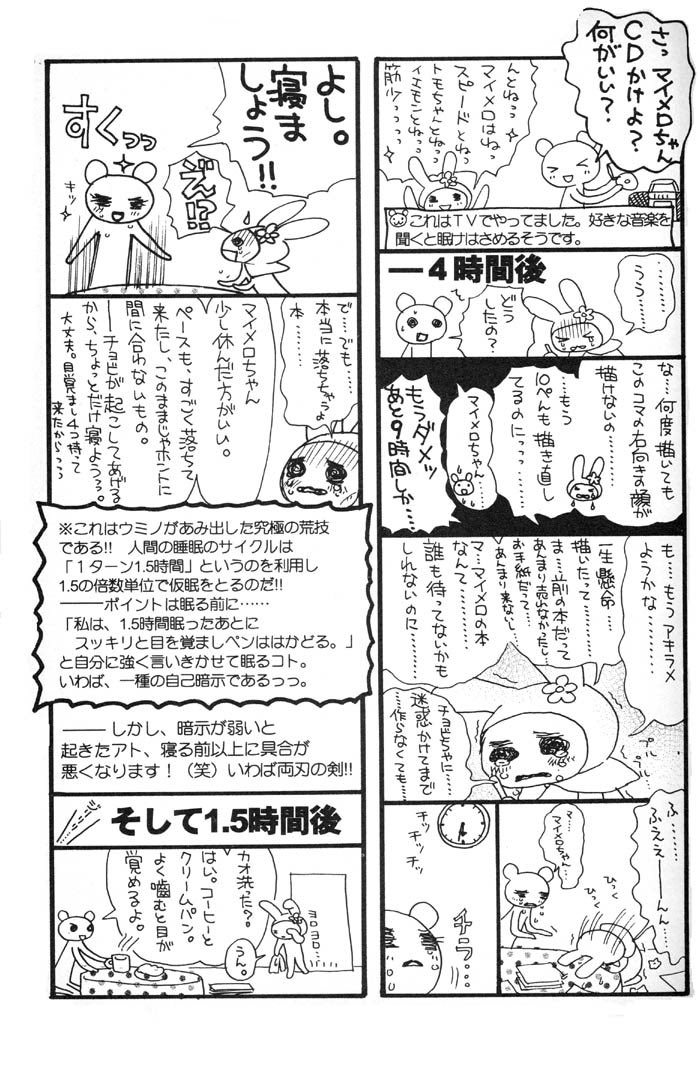 さっ マイメロちゃん
CDかけよ?
何がいい?
んとねっ
マイメロはねっ
スピードとねっ
トモちゃんとねっ
イエモンとねっ
筋少っっっっ
これはTVでやってました。好きな音楽を
聞くと眠けはさめるそうです。
―4時間後
………
うう……
どう
したの?
な…何度描いても
このコマの右向きの顔が
描けないの……
…もう
10ぺんも描き直し
てるのにっっっ…
マイメロちゃん…
もうダメッ
あと9時間しか…
も……もうアキラメ
ようかな……
一生懸命…
描いたって……
ま…前の本だって
あんまり売れなかったし…
お手紙だって…
あんまり来ないし…
マ…マイメロの本
なんて……
誰も待ってないかも
しれないのに……
チョビちゃんに
迷惑かけてまで
作らなくても…
プル
プルプル…
ふ……
ふええーんん…
ひっく
ひっく
マ…
マイメロちゃん…
チッ
チッチッ
チッチッ
チラ…
よし。
寝ま
しょう!!
すくっっ
キッ
ぞん!?
で……でも……
本当に落ちちゃうよ
本……
マイメロちゃん
少し休んだ方がいい。
ペースも、すごく落ちて
来たし、このままじゃホントに
間に合わないもの。
――チョビが起こしてあげる
から、ちょっとだけ寝ようっっ?
大丈夫。目覚まし4つ持って
来たからっっっ
※これはウミノがあみ出した究極の荒技
である!! 人間の睡眠のサイクルは
「1ターン1.5時間」というのを利用し
1.5の倍数単位で仮眠をとるのだ!!
―――ポイントは眠る前に……
「私は、1.5時間眠ったあとに
スッキリと目を覚ましペンははかどる。」
と自分に強く言いきかせて眠るコト。
いわば、一種の自己暗示であるっっ。
―――しかし、暗示が弱いと
起きたアト、寝る前以上に具合が
悪くなります!(笑)いわば両刃の剣!!
そして1.5時間後
カオ洗った?
はい。コーヒーと
クリームパン。
よく噛むと目が
覚めるよ。
ヨロ
ヨロ…
うん。